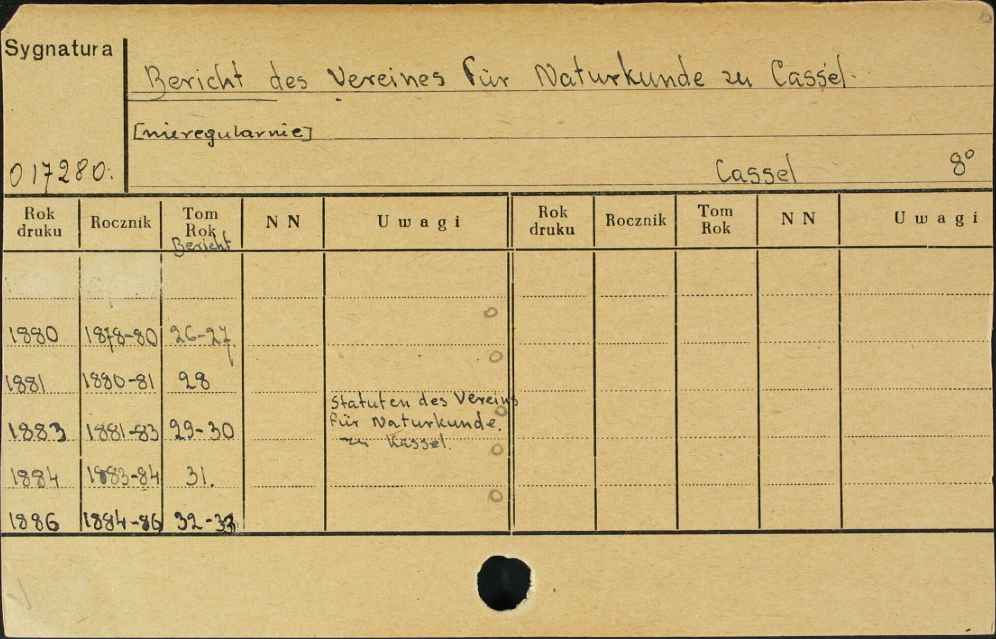 Sygnatura
Bericht des Vereines für Naturkunde zu Cassel.
[nieregularnie]
017280.
Cassel 8°
Rok druku Rocznik Tom Rok NN Uwagi Rok druku Rocznik Tom Rok NN Uwagi
Bericht
1880 1878-80 26-27.
1881 1880-81 28
Statuten des Vereins
für Naturkunde.
1883 1881-83 29-30
zu Kassel.
1884 1883-84 31.
1886 1884-86 32-33